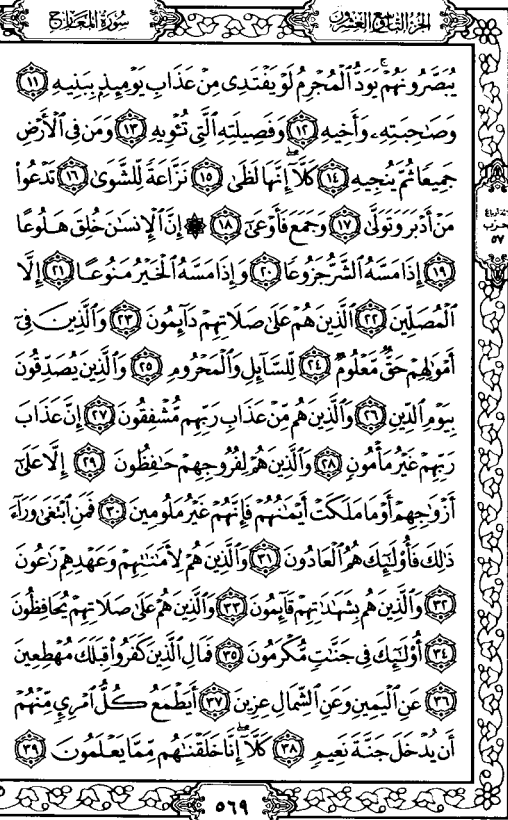 سُورَةُ المَعَارِجِ الجُزْءُ التَّاسِعُ وَالعِشْرُونَ
يُبَصَّرُونَهُمْ ۚ يَوَدُّ ٱلْمُجْرِمُ لَوْ يَفْتَدِى مِنْ عَذَابِ يَوْمِئِذٍۭ بِبَنِيهِ ١١
وَصَٰحِبَتِهِۦ وَأَخِيهِ ١٢ وَفَصِيلَتِهِ ٱلَّتِى تُـْٔوِيهِ ١٣ وَمَن فِى ٱلْأَرْضِ
جَمِيعًا ثُمَّ يُنجِيهِ ١٤ كَلَّآ ۖ إِنَّهَا لَظَىٰ ١٥ نَزَّاعَةً لِّلشَّوَىٰ ١٦ تَدْعُوا۟
مَنْ أَدْبَرَ وَتَوَلَّىٰ ١٧ وَجَمَعَ فَأَوْعَىٰٓ ١٨ ۞ إِنَّ ٱلْإِنسَٰنَ خُلِقَ هَلُوعًا
١٩ إِذَا مَسَّهُ ٱلشَّرُّ جَزُوعًا ٢٠ وَإِذَا مَسَّهُ ٱلْخَيْرُ مَنُوعًا ٢١ إِلَّا
ٱلْمُصَلِّينَ ٢٢ ٱلَّذِينَ هُمْ عَلَىٰ صَلَاتِهِمْ دَآئِمُونَ ٢٣ وَٱلَّذِينَ فِىٓ
أَمْوَٰلِهِمْ حَقٌّ مَّعْلُومٌ ٢٤ لِّلسَّآئِلِ وَٱلْمَحْرُومِ ٢٥ وَٱلَّذِينَ يُصَدِّقُونَ
بِيَوْمِ ٱلدِّينِ ٢٦ وَٱلَّذِينَ هُم مِّنْ عَذَابِ رَبِّهِم مُّشْفِقُونَ ٢٧ إِنَّ عَذَابَ
رَبِّهِمْ غَيْرُ مَأْمُونٍ ٢٨ وَٱلَّذِينَ هُمْ لِفُرُوجِهِمْ حَٰفِظُونَ ٢٩ إِلَّا عَلَىٰٓ
أَزْوَٰجِهِمْ أَوْ مَا مَلَكَتْ أَيْمَٰنُهُمْ فَإِنَّهُمْ غَيْرُ مَلُومِينَ ٣٠ فَمَنِ ٱبْتَغَىٰ وَرَآءَ
ذَٰلِكَ فَأُو۟لَٰٓئِكَ هُمُ ٱلْعَادُونَ ٣١ وَٱلَّذِينَ هُمْ لِأَمَٰنَٰتِهِمْ وَعَهْدِهِمْ رَٰعُونَ
٣٢ وَٱلَّذِينَ هُم بِشَهَٰدَٰتِهِمْ قَآئِمُونَ ٣٣ وَٱلَّذِينَ هُمْ عَلَىٰ صَلَاتِهِمْ يُحَافِظُونَ
٣٤ أُو۟لَٰٓئِكَ فِى جَنَّٰتٍ مُّكْرَمُونَ ٣٥ فَمَالِ ٱلَّذِينَ كَفَرُوا۟ قِبَلَكَ مُهْطِعِينَ
٣٦ عَنِ ٱلْيَمِينِ وَعَنِ ٱلشِّمَالِ عِزِينَ ٣٧ أَيَطْمَعُ كُلُّ ٱمْرِئٍ مِّنْهُمْ
أَن يُدْخَلَ جَنَّةَ نَعِيمٍ ٣٨ كَلَّآ ۖ إِنَّا خَلَقْنَٰهُم مِّمَّا يَعْلَمُونَ ٣٩
حزب
٥٧
٥٦٩